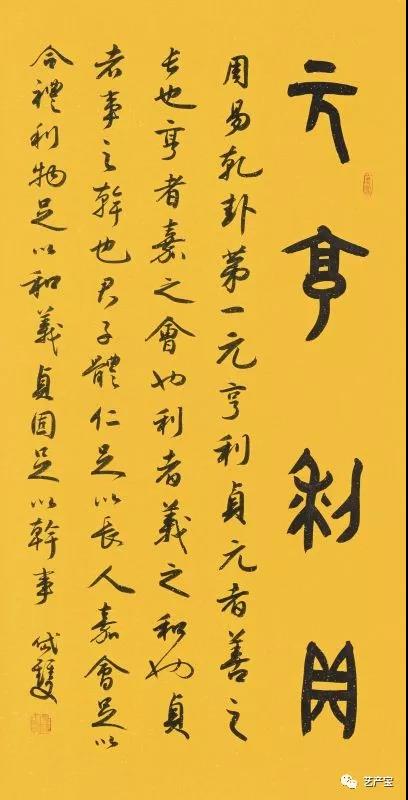 元亨利貞
周易乾卦第一元亨利貞元者善之
長也亨者嘉之會也利者義之和也貞
者事之幹也君子體仁足以長人嘉會足以
合禮利物足以和義貞固足以幹事
艺产宝